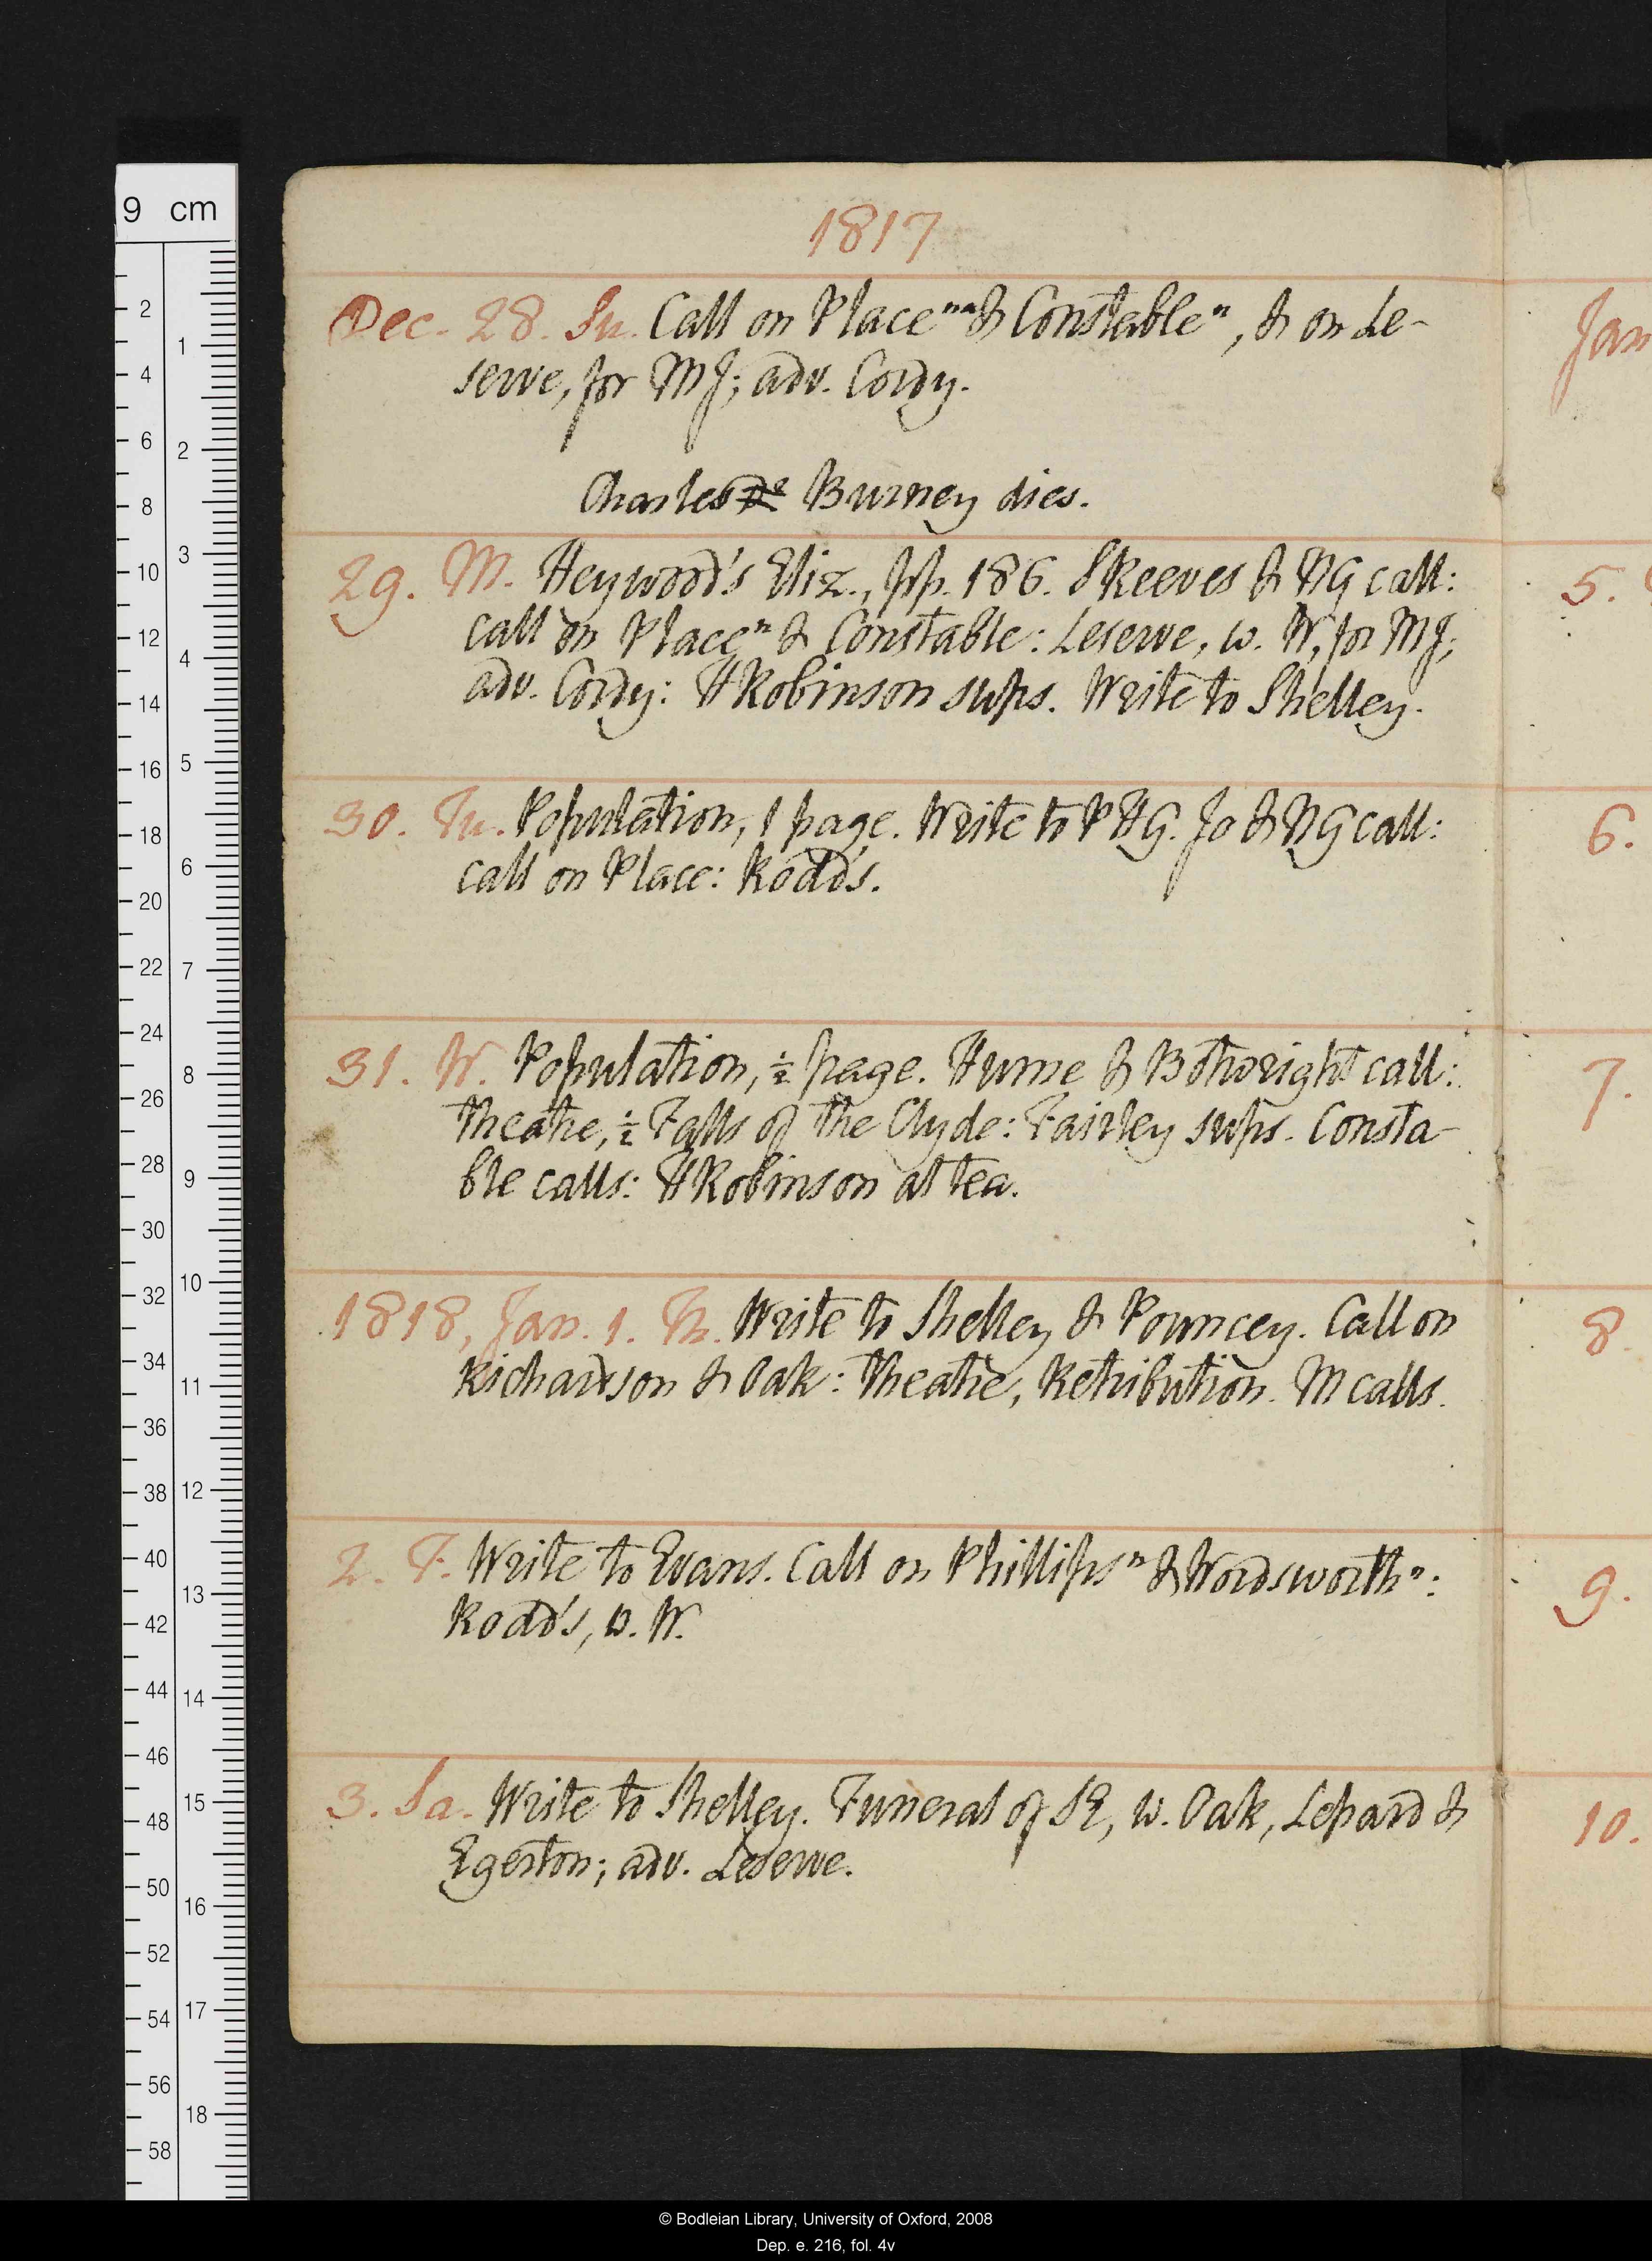 1817
Dec. 28. Su. Call on Place nn & Constable n, & on Le-
serve, for MJ; adv. Cordy.
Charles Burney dies.
29. M. Heywood's Eliz., pp. 186. Skeeves & NG call:
call on Place n & Constable: Leserve, w. W, for MJ;
adv. Cordy: HRobinson sups. Write to Shelley.
30. Tu. Population, 1 page. Write to PHG. Jo & NG call:
call on Place: Rodd's.
31. W. Population, ½ page. Hume & Bothwright call:
theatre, ½ Falls of the Clyde: Fairley sups. Consta-
ble calls: HRobinson at tea.
1818, Jan. 1. Th. Write to Shelley & Pouncey. Call on
Richardson & Oak: theatre, Retribution. M calls.
2. F. Write to Evans. Call on Phillips n & Wordsworth n:
Rodd's, w. W.
3. Sa. Write to Shelley. Funeral of SE, w. Oak, Lepard &
Egerton; adv. Leserve.
Jan
5.
6.
7.
8.
9.
10.
9 cm
2
4
6
8
10
12
14
16
18
20
22
24
26
28
30
32
34
36
38
40
42
44
46
48
50
52
54
56
58
1
2
3
4
5
6
7
8
9
10
11
12
13
14
15
16
17
18
© Bodleian Library, University of Oxford, 2008
Dep. e. 216, fol. 4v